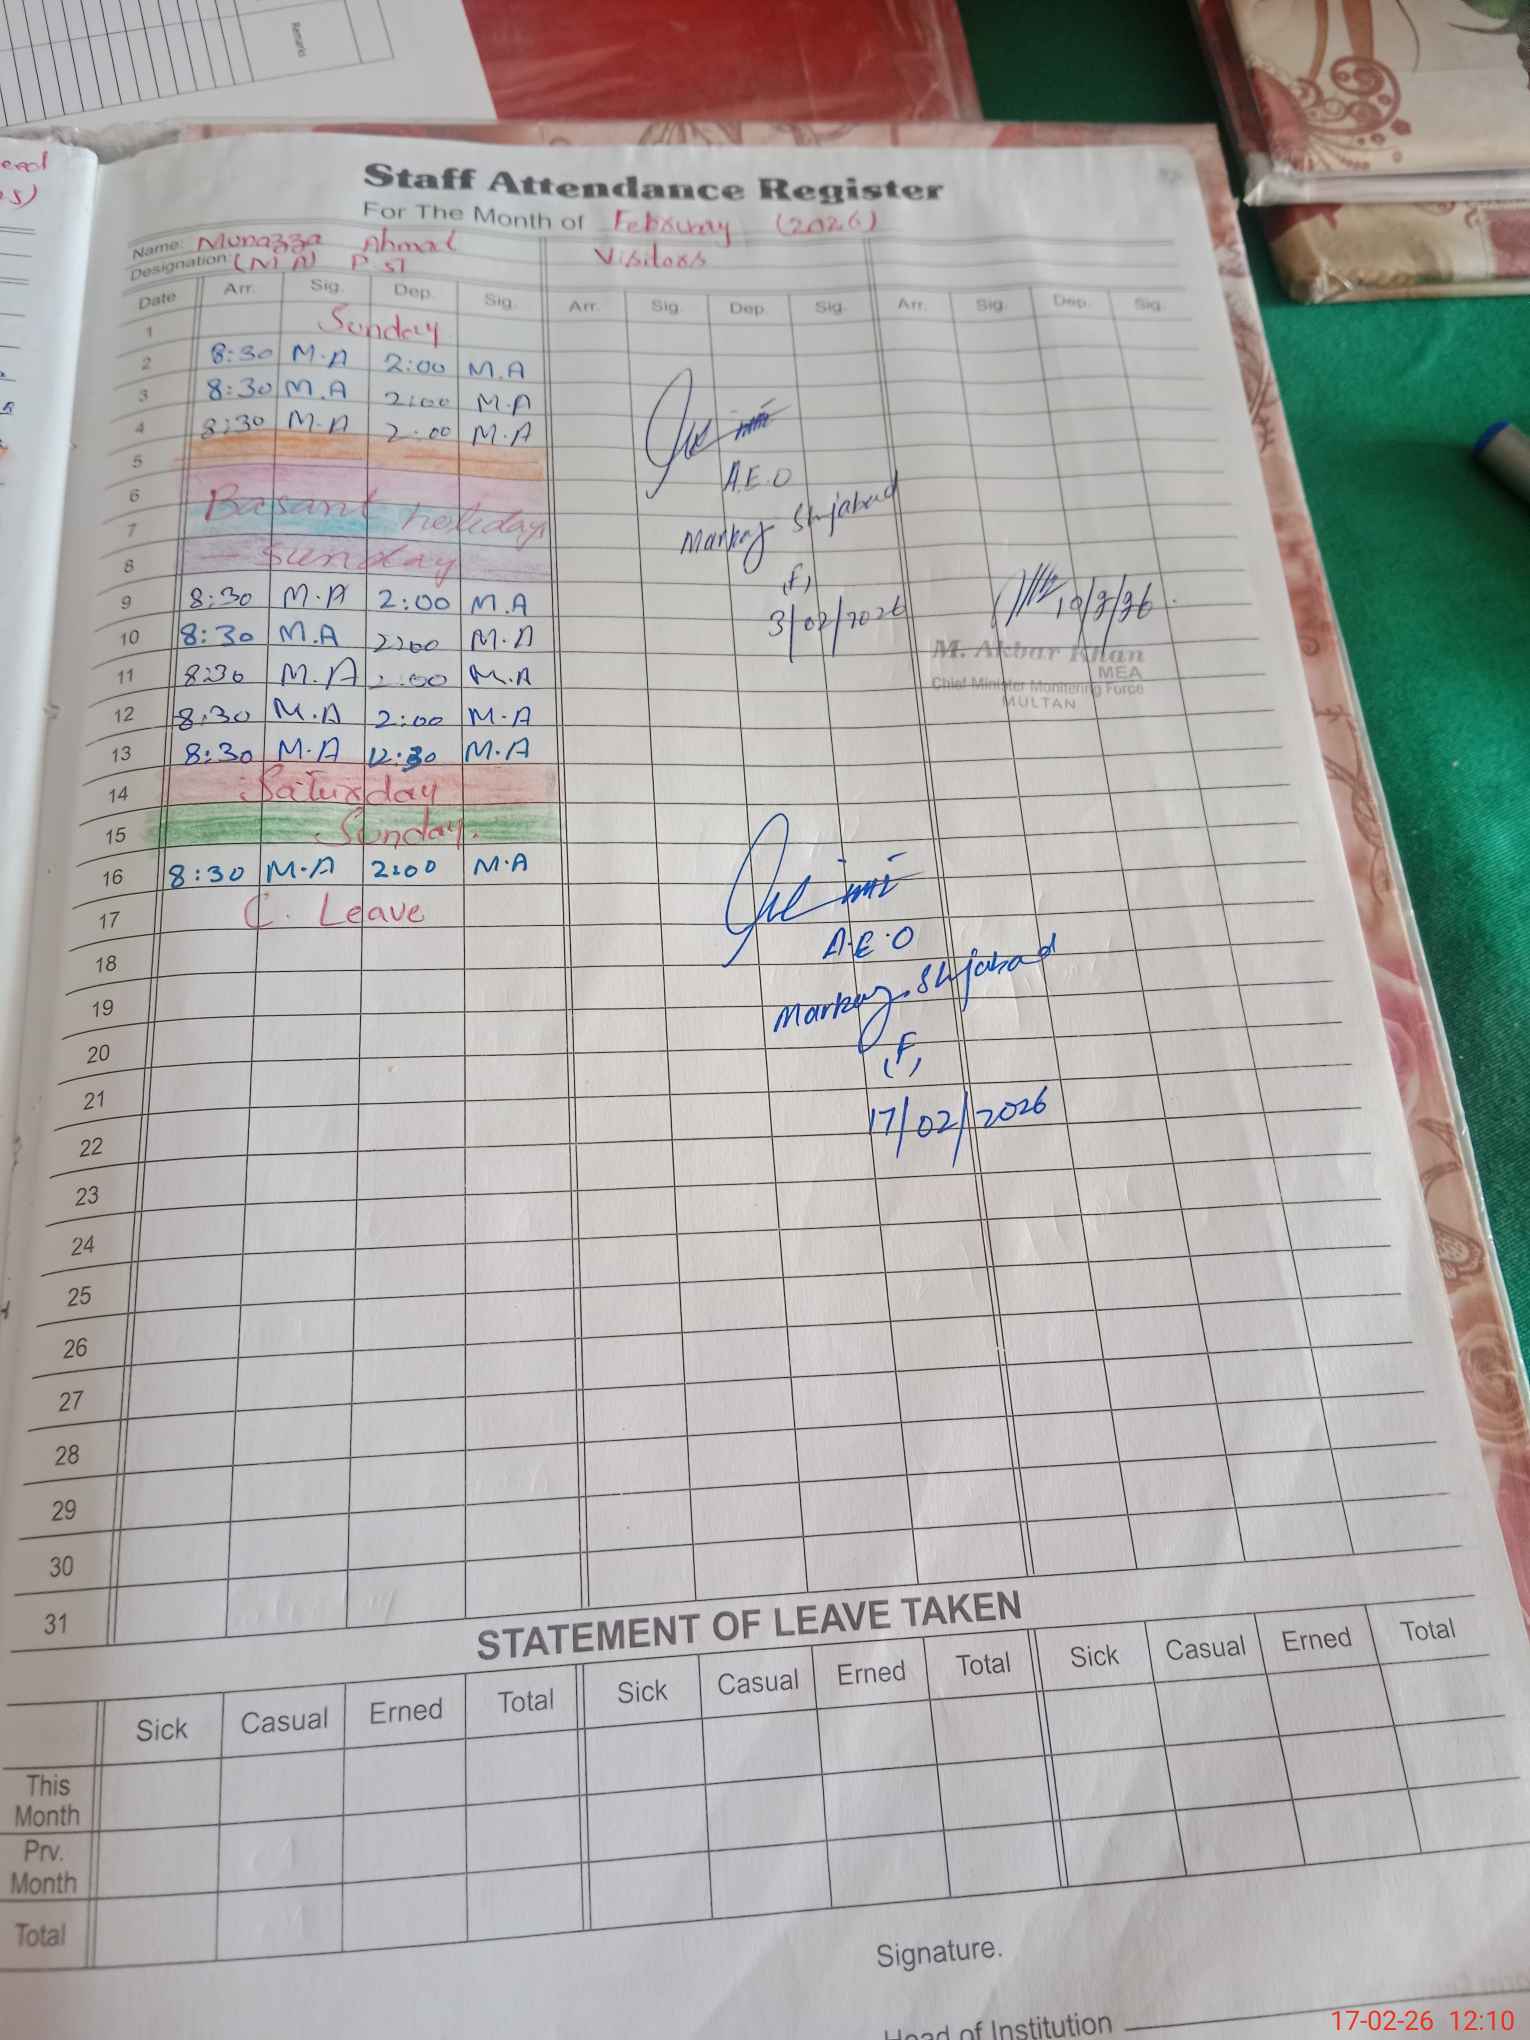 Remarks
Staff Attendance Register
For The Month of February (2026)
Name: Munazza Ahmad Visitors
Designation: (M A) P.ST
Date Arr. Sig. Dep. Sig. Arr. Sig. Dep. Sig. Arr. Sig. Dep. Sig.
1 Sunday
2 8:30 M.A 2:00 M.A
3 8:30 M.A 2:00 M.A
4 8:30 M.A 2:00 M.A
5
6
7 Basant holidays
8 Sunday
9 8:30 M.A 2:00 M.A
10 8:30 M.A 2:00 M.A
11 8:30 M.A 2:00 M.A
12 8:30 M.A 2:00 M.A
13 8:30 M.A 12:30 M.A
14 Saturday
15 Sunday.
16 8:30 M.A 2:00 M.A
17 C. Leave
18
19
20
21
22
23
24
25
26
27
28
29
30
31
A.E.O
Markaz Shjabad
(F)
3/02/2026
M. Akbar Khan
MEA
Chief Minister Monitering Force
MULTAN
A.E.O
Markaz Shjabad
(F)
17/02/2026
STATEMENT OF LEAVE TAKEN
Sick Casual Erned Total Sick Casual Erned Total Sick Casual Erned Total
This Month
Prv. Month
Total
Signature.
Head of Institution
17-02-26 12:10